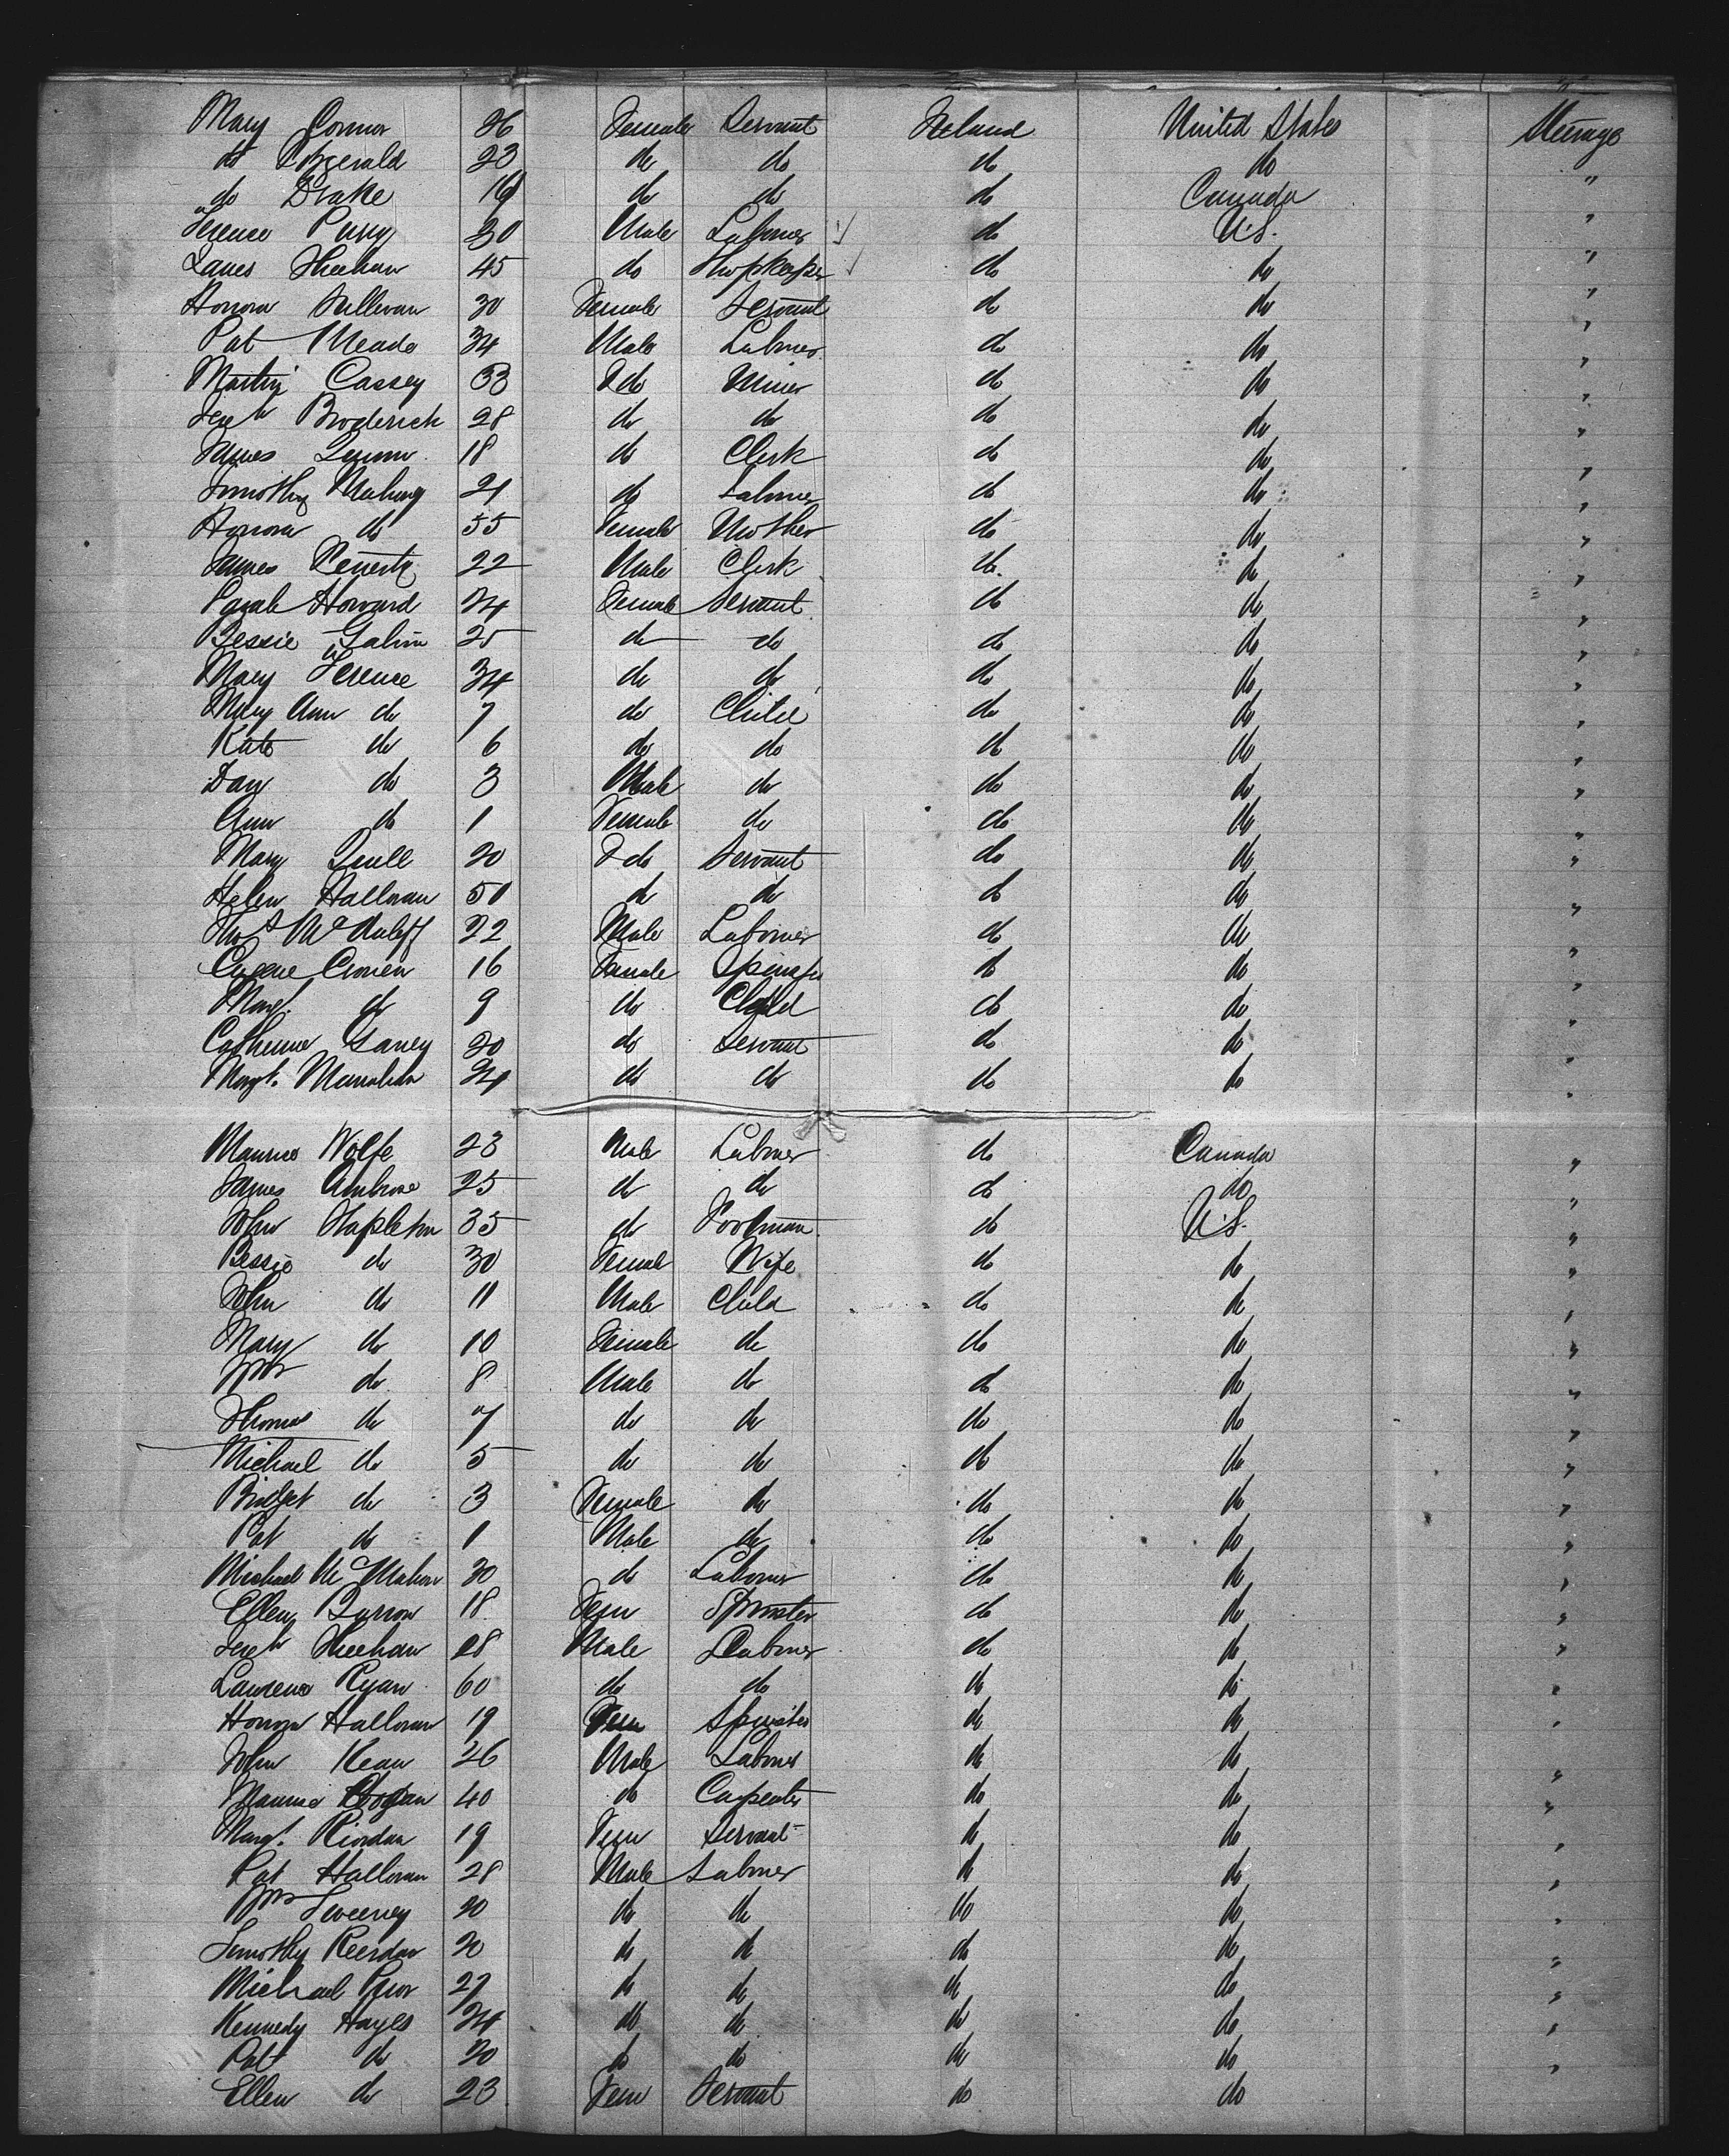 Mary Connor 26 Female Servant Ireland United States Steerage
do Fitzgerald 23 do do do do "
do Drake 19 do do do Canada "
Terence 30 Male Laborer do U.S. "
James Sheehan 45 do Shopkeeper do do "
Honora Sullivan 30 Female Servant do do "
Pat Meade 34 Male Laborer do do "
Martin Cassey 33 do Miner do do "
Jerh Broderick 28 do do do do "
James 18 do Clerk do do "
Timothy Mahony 21 do Laborer do do "
Honora do 55 Female Mother do do "
James 22 Male Clerk do do "
Sarah Howard 24 Female Servant do do "
Bessie Galvin 25 do do do do "
Mary Terence 34 do do do do "
Mary Ann do 7 do Child do do "
Kate do 6 do do do do "
Dan do 3 Male do do do "
Ann do 1 Female do do do "
Mary Quill 20 do Servant do do "
Helen Halloran 50 do do do do "
Thos McAuliff 22 Male Laborer do do "
Eugene Cronen 16 Female Spinster do do "
Margt. do 9 do Child do do "
Catherine Ganey 20 do Servant do do "
Margt. Manahan 24 do do do do "
Maurice Wolfe 23 Male Laborer do Canada "
James Ambrose 25 do do do do "
John Stapleton 35 do Footman do U.S. "
Bessie do 30 Female Wife do do "
John do 11 Male Child do do "
Mary do 10 Female do do do "
Wm do 8 Male do do do "
Thomas do 7 do do do do "
Michael do 5 do do do do "
Bridget do 3 Female do do do "
Pat do 1 Male do do do "
Michael McMahon 30 do Laborer do do "
Ellen Barron 18 Fem Spinster do do "
Jerh Sheehan 28 Male Laborer do do "
Laurence Ryan 60 do do do do "
Honora Halloran 19 Fem Spinster do do "
John Kean 26 Male Laborer do do "
Maurice Hogan 40 do Carpenter do do "
Margt. Riordan 19 Fem Servant do do "
Pat Halloran 28 Male Laborer do do "
Wm Sweeney 20 do do do do "
Timothy Reerdan 20 do do do do "
Michael Prior 27 do do do do "
Kennedy Hayes 24 do do do do "
Pat do 20 do do do do "
Ellen do 23 Fem Servant do do